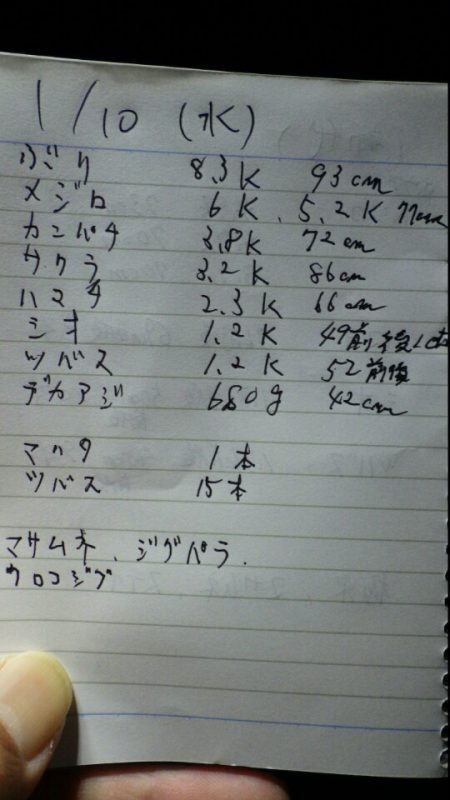 1/10 (水)
ぶり 8.3K 93cm
メジロ 6K、5.2K 77cm
カンパチ 3.8K 72cm
サワラ 3.2K 86cm
ハマチ 2.3K 66cm
シオ 1.2K 49前後
ツバス 1.2K 52前後
デカアジ 680g 42cm
マハタ 1本
ツバス 15本
マサムネ、ジグパラ.
ウロコジグ